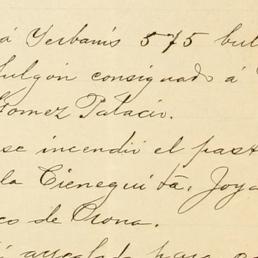 á Yerbanís 575 bul
fulgón consignado á
Gomez Palacio.
se incendió el past
la Cieneguita, Joya
co de Orona.